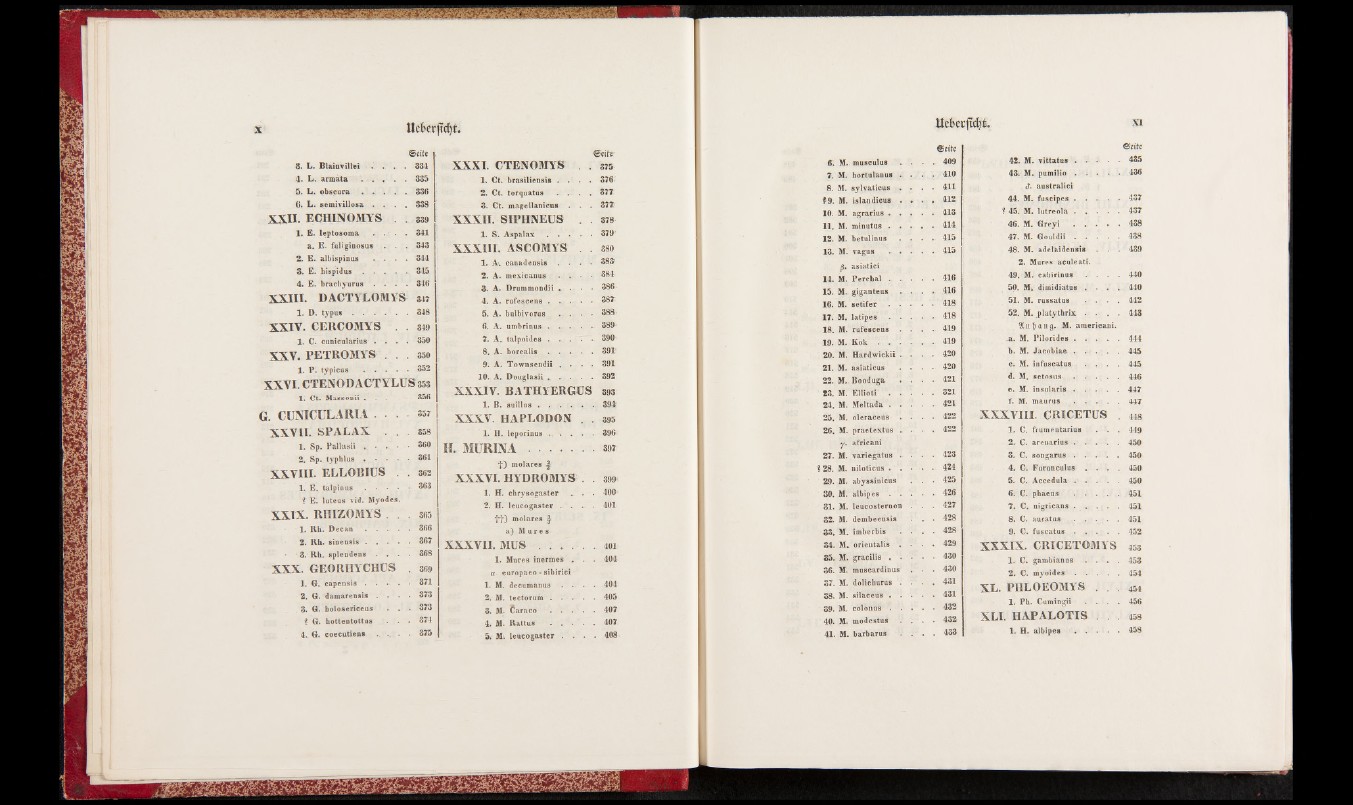 X
Uebersicht.
Seite
3. L. Blainvillei . . . . 334
4. L. armata . . . . . 335
5. L. obscura . . . . . 336
6. L. semivillosa . . . . 338
XXII. ECHINOMYS . . 339
1. E. leptosoma . . . . 341
a. E. fuliginosus . . . 343
2. E. albispinus . . . . 344
3. E. hispidus . . . . . 345
4. E. brachyurus . . . . 346
XXIII. DACTYLOMYS 347
1. D. typus . . . . . . 348
XXIV. CERCOMYS . . 349
1. C. cunicularius . . . . 350
XXV. PETROMYS . . . 350
1. P. typicus . . . . . 352
XXVI. CTENODACTYLUS 353
1. Ct. Massonii . 356
G. CUNICULARIA . . . . 357
XXVII. SPALAX . . . 358
1. Sp. Pallasii . . . . . 360
2. Sp. typhlus . . . . . 361
XXVIII. ELLOBIUS . . 362
1. E. talpinus . . . . . 363
? E. luteus vid. Myodes.
XXIX. RHIZOMYS . . . 365
1. Rh. Decan . . . . . 366
2. Rh. sinensis . . . . . 367
3. Rh. splendens . . . . 368
XXX. GEORHYCHUS . 369
1. G. capensis . . . . . 371
2. G. damarensis . . . . 373
3. G. holosericeus . . . 373
? G. hottentottus . . . 374
4. G. coecutiens . . . . 375
Seite
XXXI. CTENOMYS . . 375
1. Ct. brasiliensis . . . . 376
2. Ct. torquatus . . . . 377
3. Ct. magellanicus . . . 377
XXXII. SIPHNEUS . . 378
1. S. Aspalax . . . . . 379
XXXIII. ASCOMYS . . 380
1. A. canadensis . . . . 383
2. A. mexicanus . . . . 384
3. A. Drummondii . . . . 386
4. A. rufescens . . . . . 387
5. A. bulbivorus . . . . 388
6. A. umbrinus . . . . . 389
7. A. talpoides . . . . . 390
8. A. borealis . . . . . 391
9. A. Townsendii . . . . 391
10. A. Douglasii . . . . . 392
XXXIV. BATHYERGUS 393
1. B. suillus . . . . . . 394
XXXV. HAPLODON . . 395
1. H. leporinus . . . . . 396
H. MURINA . . . . . . . 397
†) molares 2/2
XXXVI. HYDROMYS . . 399
1. H. chrysogaster . . . 400
2. H. leucogaster . . . . 401
††) molares 3/3
a) Mures
XXXVII. MUS . . . . . . 401
1. Mures inermes . . . 404
α europaeo-sibirici
1. M. decumanus . . . . 404
2. M. tectorum . . . . . 405
3. M. Caraco . . . . . 407
4. M. Rattus . . . . . 407
5. M. leucogaster . . . . 408
Uebersicht.
XI
Seite
6. M. musculus . . . . 409
7. M. hortulanus . . . . 410
8. M. sylvaticus . . . . 411
? 9. M. islandicus . . . . 412
10. M. agrarius . . . . . 413
11. M. minutus . . . . . 414
12. M. betulinus . . . . 415
13. M. vagus . . . . . 415
β. asiatici
14. M. Perchal . . . . . 416
15. M. giganteus . . . . 416
16. M. setifer . . . . . 418
17. M. latipes . . . . . 418
18. M. rufescens . . . . 419
19. M. Kok . . . . . . 419
20. M. Hardwickii . . . . 420
21. M. asiaticus . . . . 420
22. M. Booduga . . . . 421
23. M. Ellioti . . . . . 321
24. M. Meltada . . . . . 421
25. M. oleraceus . . . . 422
26. M. praetextus . . . . 422
γ. africani
27. M. variegatus . . . . 423
? 28. M. niloticus . . . . . 424
29. M. abyssinicus . . . 425
30. M. albipes . . . . . 426
31. M. leucosternon . . . 427
32. M. dembeensis . . . 428
33. M. imberbis . . . . 428
34. M. orientalis . . . . 429
35. M. gracilis . . . . . 430
36. M. muscardinus . . . 430
37. M. dolichurus . . . . 431
38. M. silaceus . . . . . 431
39. M. colonus . . . . . 432
40. M. modestus . . . . 432
41. M. barbarus . . . . 433
Seite
42. M. vittatus . . . . . 435
43. M. pumilio . . . . . 436
δ. australici
44. M. fuscipes . . . . . 437
? 45. M. lutreola . . . . . 437
46. M. Greyi . . . . . 438
47. M. Gouldii . . . . . 438
48. M. adelaidensis . . . 439
2. Mures aculeati.
49. M. cahirinus . . . . 440
50. M. dimidiatus . . . . 440
51. M. russatus . . . . 442
52. M. platythrix . . . . 443
Anhang. M. americani.
a. M. Pilorides . . . . . 444
b. M. Jacobiae . . . . . 445
c. M. infuscatus . . . . 445
d. M. setosus . . . . . 446
e. M. insularis . . . . . 447
f. M. maurus . . . . . 447
XXXVIII. CRICETUS . 448
1. C. frumentarius . . . 449
2. C. arenarius . . . . . 450
3. C. songarus . . . . . 450
4. C. Furunculus . . . . 450
5. C. Accedula . . . . . 450
6. C. phaeus . . . . . 451
7. C. nigricans . . . . . 451
8. C. auratus . . . . . 451
9. C. fuscatus . . . . . 452
XXXIX. CRICETOMYS 453
1. C. gambianus . . . . 453
2. C. myoides . . . . . 454
XL. PHLOEOMYS . . . 454
1. Ph. Cumingii . . . . 456
XLI. HAPALOTIS . . . 458
1. H. albipes . . . . . 458